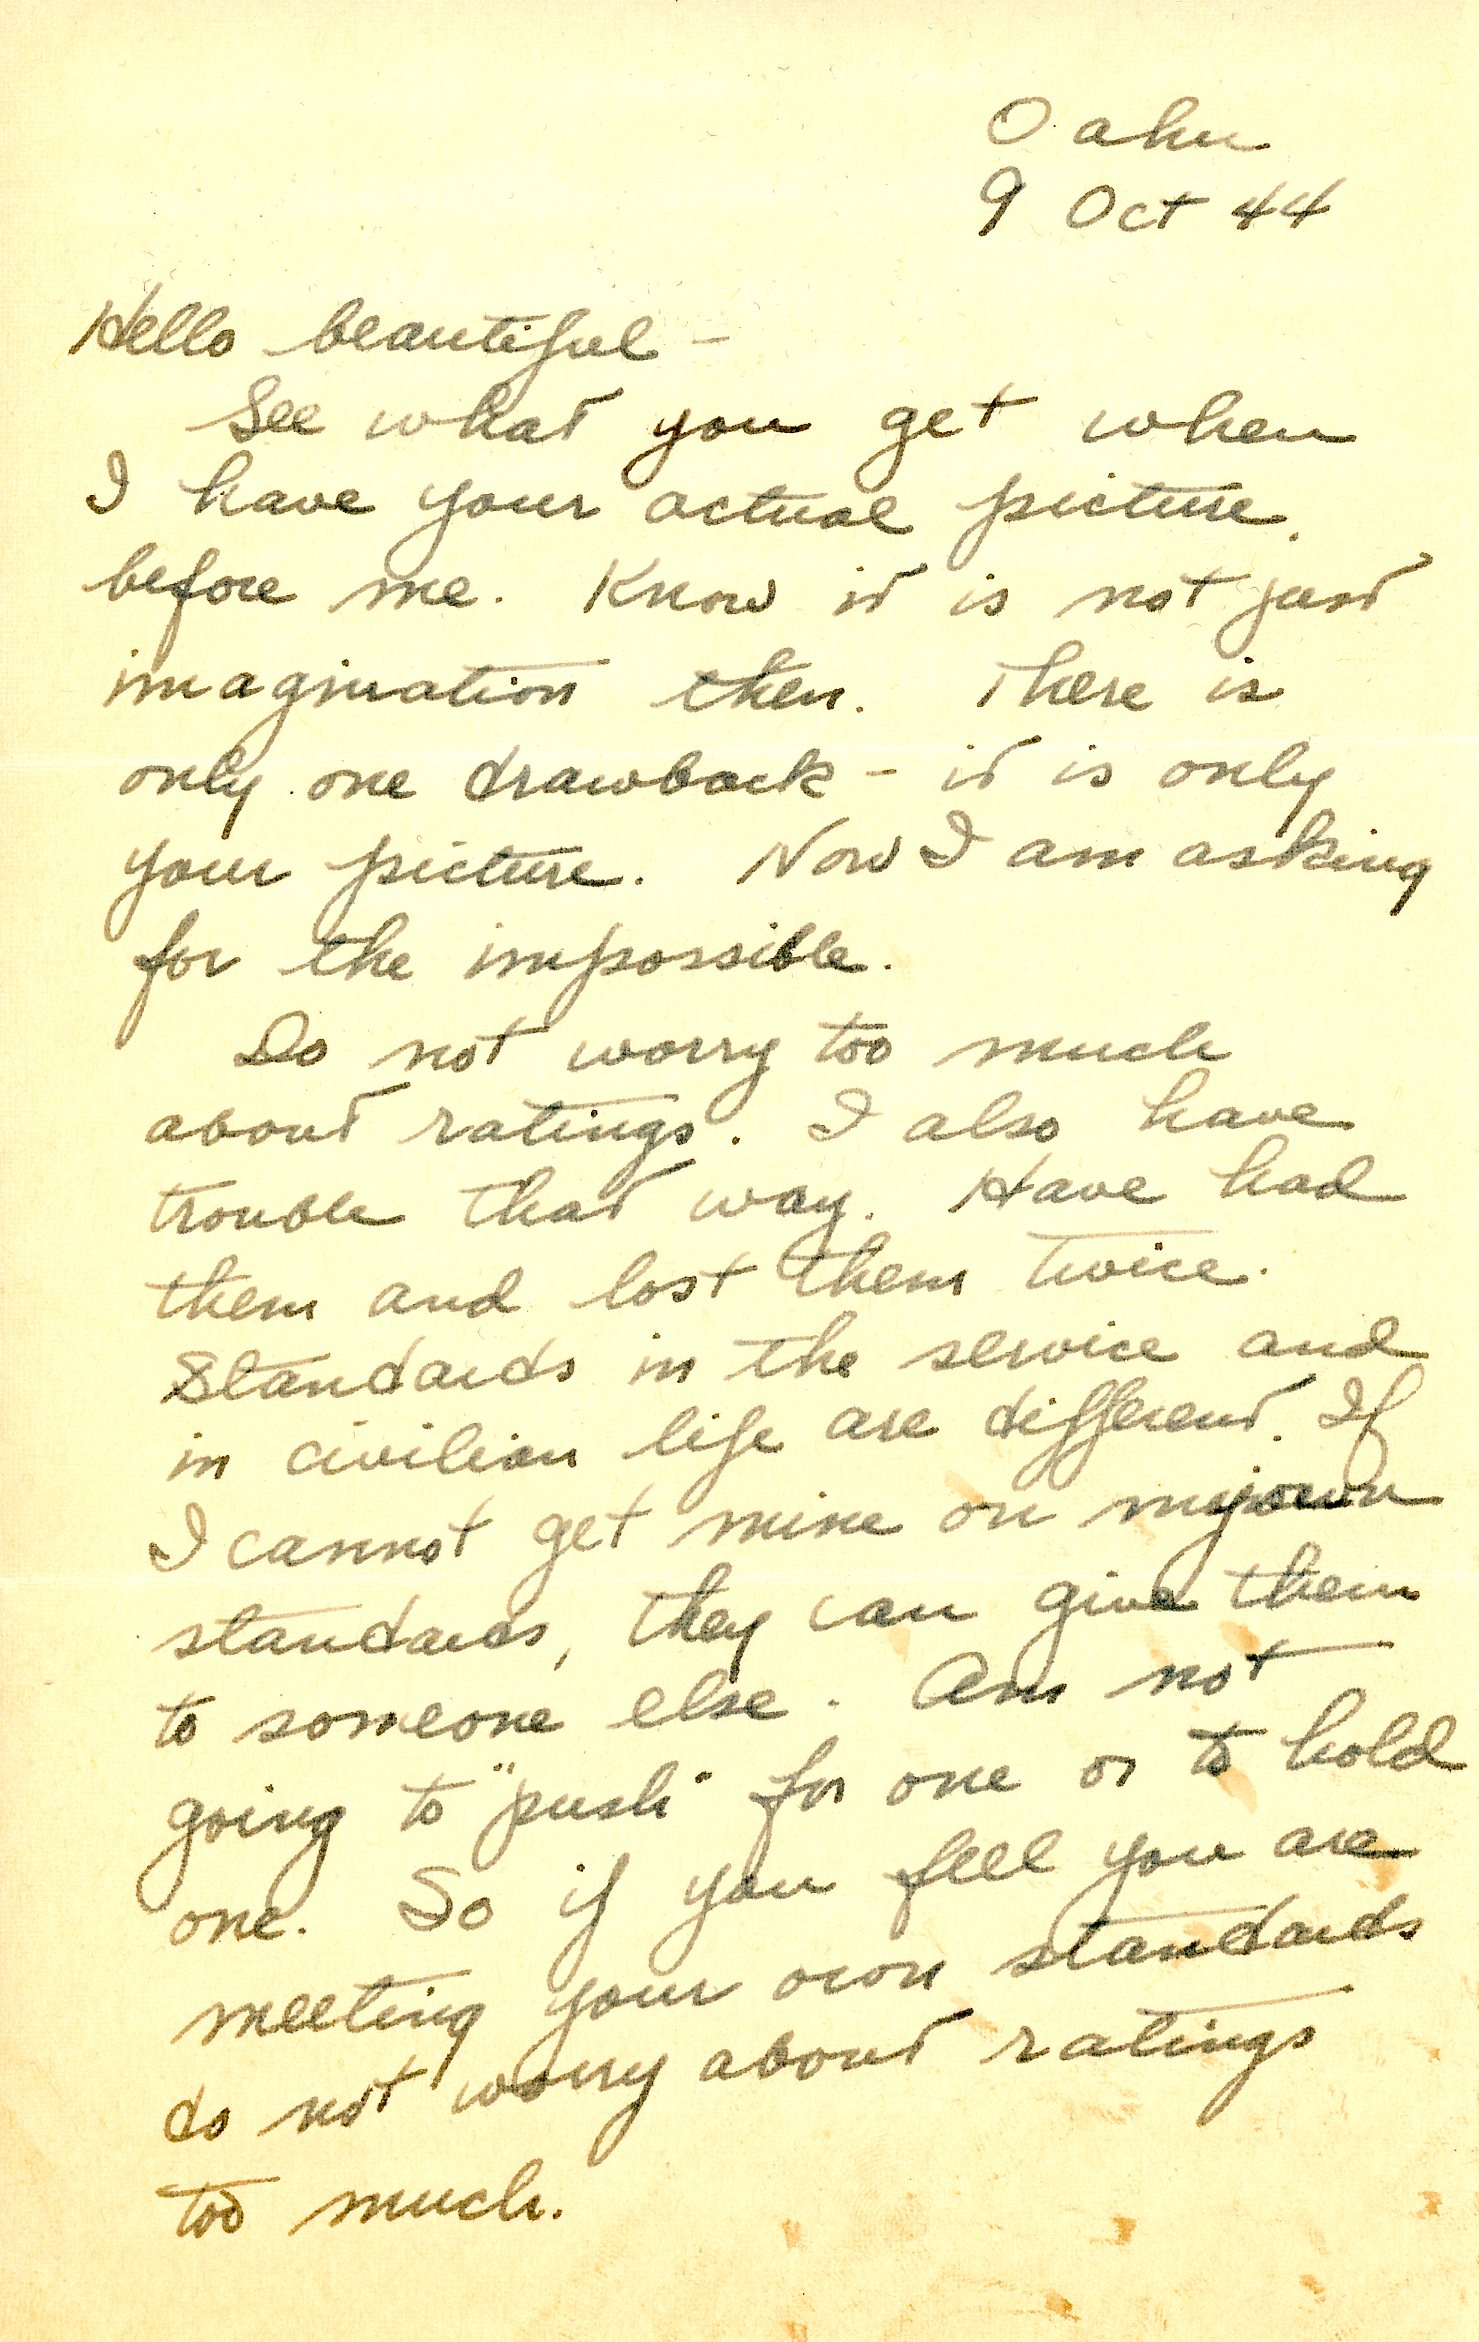 Oahu
9 Oct 44
Hello beautiful -
See what you get when
I have your actual picture
before me. Know it is not just
imagination then. There is
only one drawback - it is only
your picture. Now I am asking
for the impossible.
Do not worry too much
about ratings. I also have
trouble that way. Have had
them and lost them twice.
Standards in the service and
in civilian life are different. If
I cannot get mine on my own
standards, they can give them
to someone else. Am not
going to "push" for one or to hold
one. So if you feel you are
meeting your own standards
do not worry about ratings
too much.